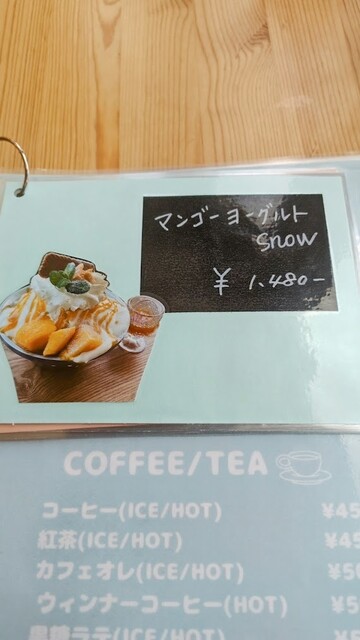 マンゴーヨーグルト
snow
¥ 1,480-
COFFEE/TEA
コーヒー(ICE/HOT)
紅茶(ICE/HOT)
カフェオレ(ICE/HOT)
ウィンナーコーヒー(HOT)
黒糖ラテ(ICE/HOT)